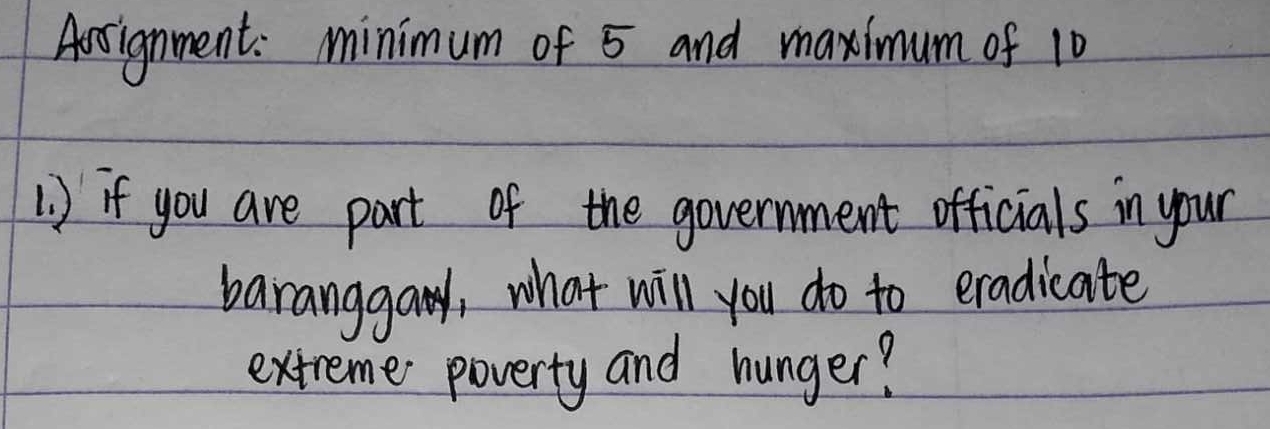 Assignment: minimum of 5 and maximum of 10
1.) if you are part of the government officials in your
baranggay, what will you do to eradicate
extreme poverty and hunger?